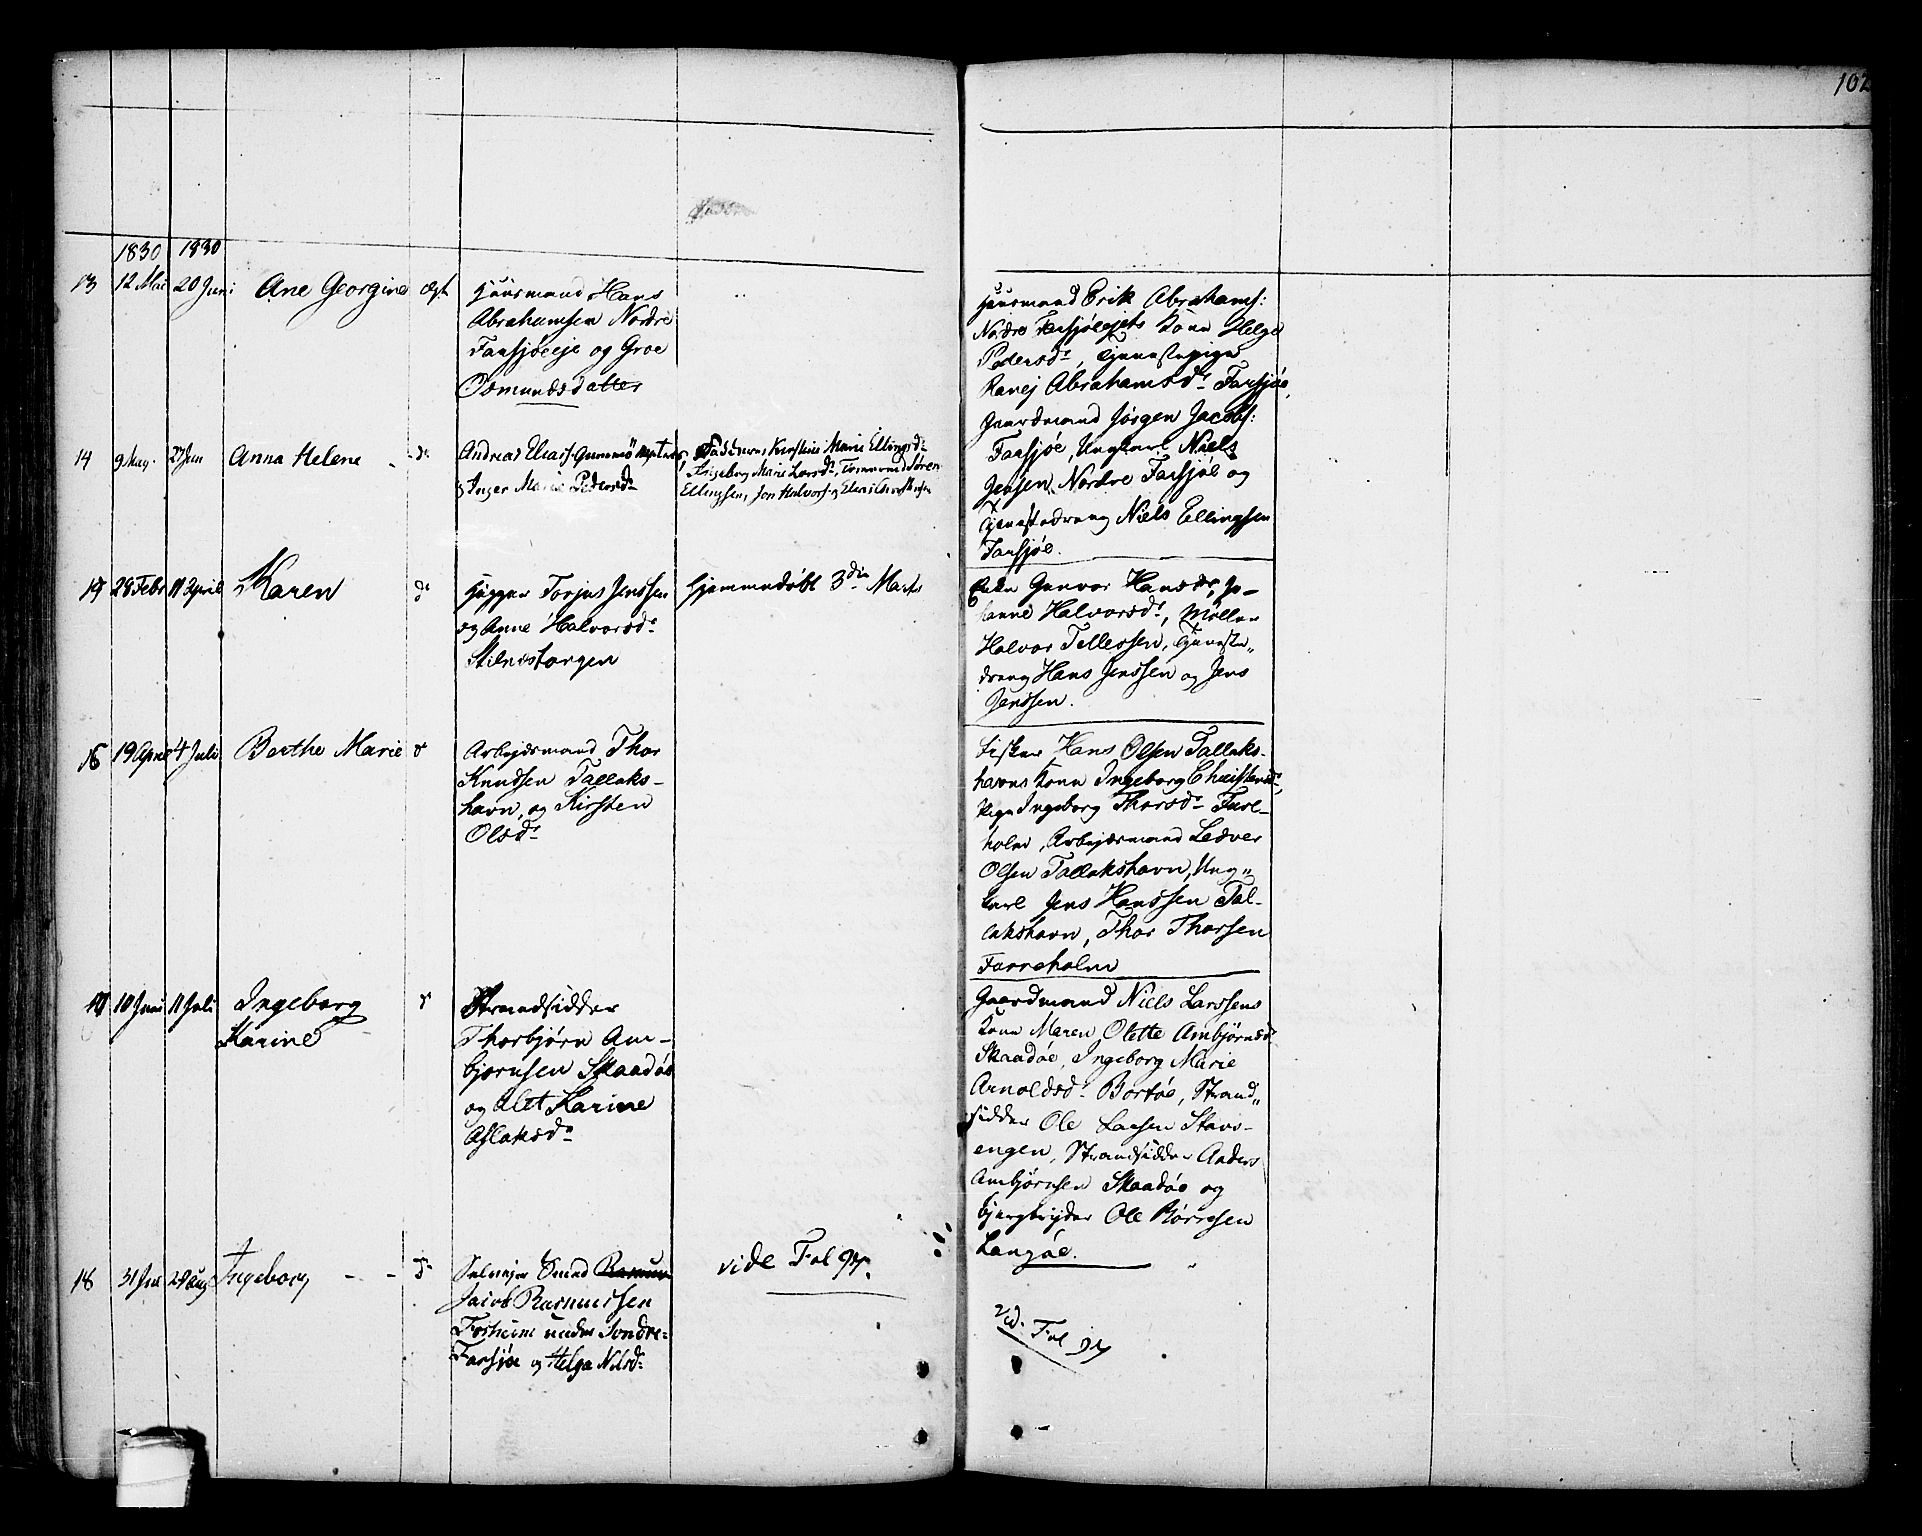 102
1830 1830
13 12 Mai 20 Juni Ane Georgine ægt
Huusmand Hans
Abrahamsen Nordre
Farsjøeeje og Groe
Osmundsdatter
Huusmand Erik Abrahams:
Nordre Farsjøeejets Kone Helge
Pedersdr, Tjenestepige
Ranej Abrahamsdr Farsjøe,
Gaardmand Jørgen Jacobs:
Farsjøe, Ungkarl Niels
Jensen, Nordre Farsjøe og
Tjenestedreng Niels Ellingssen
Farsjøe.
14 9 May. 27 Jun Anna Helene - do
Andreas Elias: Gumøe
og Inger Marie Pedersdr
Fadderne Kirstine Marie Ellingsdr
Ingeborg Marie Larsdr, Tømmermd Søren
Ellingsen, Jon Halvors: og Elias
15 28 Febr 11 April Karen do
Torjus Jenssen
og Anne Halvorsdr
Stilnestangen
hjemmedøbt 3die Marts
Enke Gunvor Hansdr, Jo-
hanne Halvorsdr, Møller
Halvor Tellefssen, Tjeneste„
dreng Hans Jenssen og Jens
Jenssen.
16 19 April 4 Juli Berthe Marie do
Arbejdsmand Thor
Knudsen Tallaks-
havn, og Kirsten
Olsdr
Fisker Hans Olsen Tallaks-
havns Kone Ingeborg Christensdr,
Pige Ingeborg Thorsdr Farre-
holm, Arbejdsmand Ledver
Olsen Tallakshavn, Ung„
karl Jens Hanssen Tal-
lakshavn, Thor Thorsen
Farreholm
17 10 Juni 11 Juli Ingeborg
Karine do
Strandsidder
Thorbjørn Am-
bjørnsen Skaadøe
og Alet Karine
Aslaksdr
Gaardmand Niels Larssens
Kone Maren Olette Ambjørnsdr
Skaadøe, Ingeborg Marie
Arnoldsdr Bortøe, Strand„
sidder Ole Larsen Stavs-
engen, Strandsidder Anders
Ambjørnsen Skaadøe og
Ole Børresen
Langøe.
18 31 Jul 29 Aug Ingeborg - - do
Selvejer Smed Rasmus
Jacob Rasmussen
Fosheim under Søndre-
Farsjøe og Helga Nilsdr
vide Fol 94.
vid. Fol 94